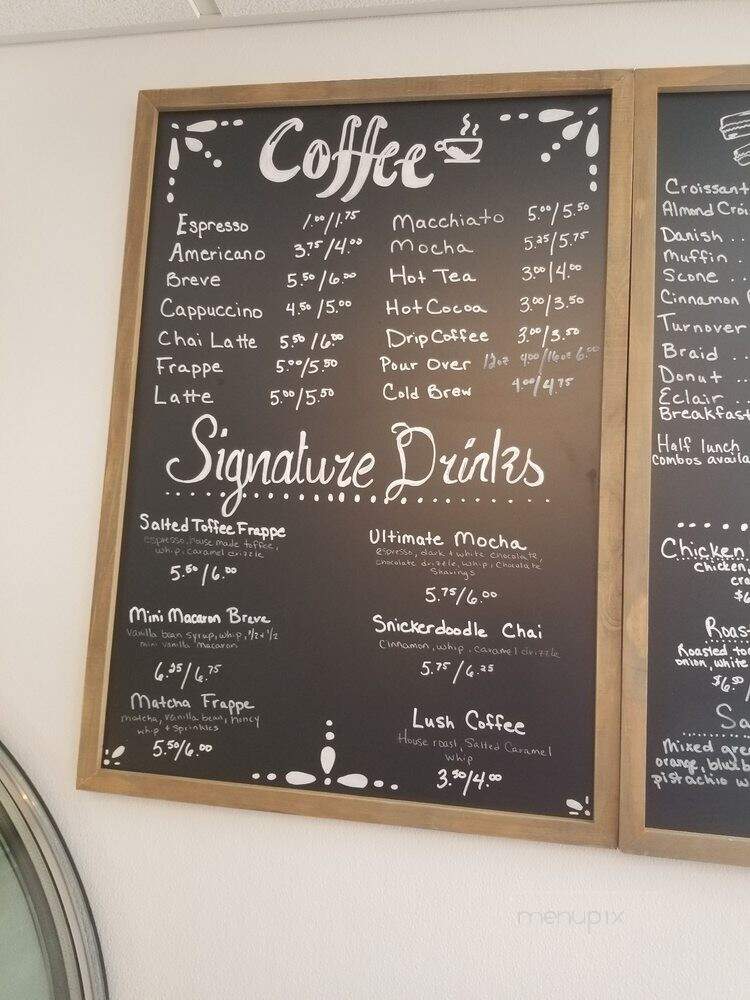 Coffee
Espresso 1.00/1.75
Americano 3.75/4.00
Breve 5.50/6.00
Cappuccino 4.50/5.00
Chai Latte 5.50/6.00
Frappe 5.00/5.50
Latte 5.00/5.50
Macchiato 5.00/5.50
Mocha 5.25/5.75
Hot Tea 3.00/4.00
Hot Cocoa 3.00/3.50
Drip Coffee 3.00/3.50
Pour Over 12oz 4.00/16oz 6.00
Cold Brew 4.00/4.75
Signature Drinks
Salted Toffee Frappe
espresso, house made toffee,
whip, caramel drizzle
5.50/6.00
Mini Macaron Breve
Vanilla bean syrup, whip, 1/2 + 1/2
mini vanilla macaron
6.25/6.75
Matcha Frappe
matcha, vanilla bean, honey
whip + sprinkles
5.50/6.00
Ultimate Mocha
espresso, dark + white chocolate,
chocolate drizzle, whip, chocolate
shavings
5.75/6.00
Snickerdoodle Chai
Cinnamon, whip, caramel drizzle
5.75/6.25
Lush Coffee
House roast, Salted Caramel
whip
3.50/4.00
Croissant
Almond Croi
Danish . .
Muffin .
Scone . .
Cinnamon
Turnover
Braid . .
Donut . .
Eclair . .
Breakfast
Half lunch
combos availa
Chicken
chicken,
cra
$6
Roast
Roasted to
onion, white
$6.50/
Sa
Mixed gre
orange, blueb
pistachio w
menupix